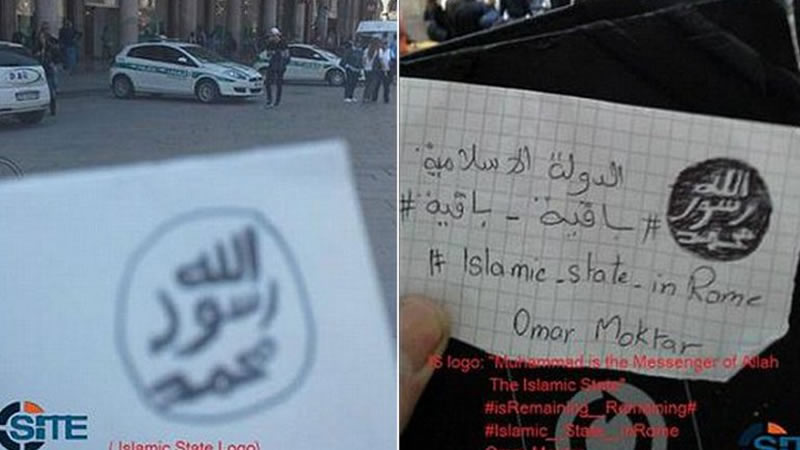 الله
رسور
محمد
SITE
(Islamic State Logo)
الدولة الاسلامية
# باقية _ باقية #
الله
رسور
محمد
# Islamic_state_in Rome
Omar Moktar
IS logo: "Muhammad is the Messenger of Allah
The Islamic State"
#isRemaining_ Remaining#
#Islamic_ State_ inRome